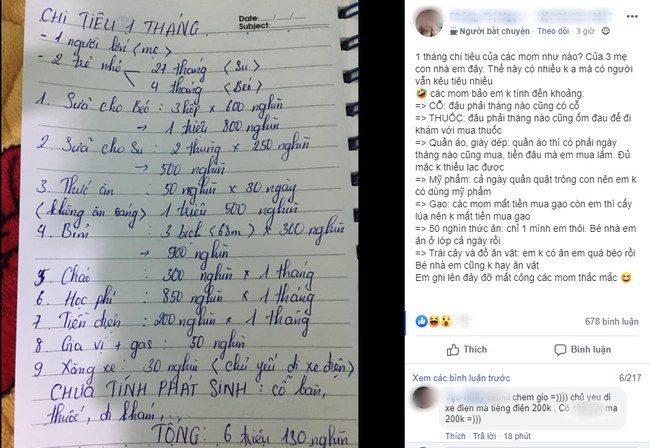 CHI TIÊU 1 THÁNG.
Date: __/__/__
Subject:
- 1 người lớn (mẹ)
- 2 trẻ nhỏ 27 tháng (Su)
4 tháng (Béo)
1. Sữa cho Béo : 3 hộp × 600 nghìn
→ 1 triệu 800 nghìn
2. Sữa cho Su : 2 thùng × 250 nghìn
→ 500 nghìn
3. Thức ăn : 50 nghìn × 30 ngày
(không ăn sáng) 1 triệu 500 nghìn
4. Bỉm : 3 bịch (68m) × 300 nghìn
→ 900 nghìn
5. Cháo : 300 nghìn × 1 tháng
6. Học phí : 850 nghìn × 1 tháng
7. Tiền điện : 200 nghìn × 1 tháng
8. Gia vị + gas : 50 nghìn
9. Xăng xe : 30 nghìn (chủ yếu đi xe điện)
CHƯA TÍNH PHÁT SINH : cỗ bàn,
thuốc, đi khám, ...
TỔNG : 6 triệu 130 nghìn
Người bắt chuyện · Theo dõi · 3 giờ
1 tháng chi tiêu của các mom như nào? Của 3 mẹ
con nhà em đây. Thế này có nhiều k ạ mà có người
vẫn kêu tiêu nhiều
🤣 các mom bảo em k tính đến khoảng:
=> CỖ: đâu phải tháng nào cũng có cỗ
=> THUỐC: đâu phải tháng nào cũng ốm đau để đi
khám với mua thuốc
=> Quần áo, giày dép: quần áo thì có phải ngày
tháng nào cũng mua, tiền đâu mà em mua lắm. Đủ
mặc k thiếu lac được
=> Mỹ phẩm: cả ngày quần quật trông con nên em k
có dùng mỹ phẩm
=> Gạo: các mom mất tiền mua gạo còn em thì cấy
lúa nên k mất tiền mua gạo
=> 50 nghìn thức ăn: chỉ 1 mình em thôi. Bé nhà em
ăn ở lớp cả ngày rồi
=> Trái cây và đồ ăn vặt: em k có ăn em quá béo rồi
Bé nhà em cũng k hay ăn vặt
Em ghi lên đây đỡ mất công các mom thắc mắc 😆
678 bình luận
Thích
Bình luận
Xem các bình luận trước
6/217
chem gio =)))) chủ yeu di
xe điẹn ma tiêng điện 200k . Có
ma
200k =)))
Thích · Trả lời · 18 phút